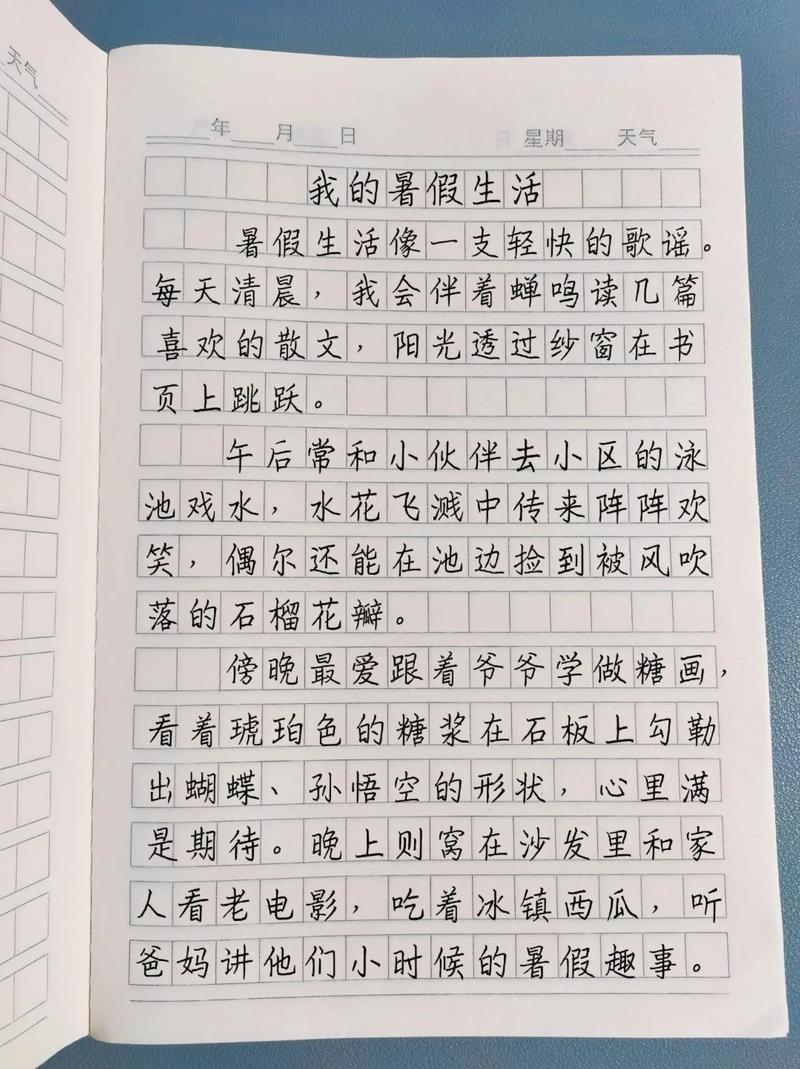 天气
年 月 日 星期 天气
我的暑假生活
暑假生活像一支轻快的歌谣。
每天清晨，我会伴着蝉鸣读几篇
喜欢的散文，阳光透过纱窗在书
页上跳跃。
午后常和小伙伴去小区的泳
池戏水，水花飞溅中传来阵阵欢
笑，偶尔还能在池边捡到被风吹
落的石榴花瓣。
傍晚最爱跟着爷爷学做糖画，
看着琥珀色的糖浆在石板上勾勒
出蝴蝶、孙悟空的形状，心里满
是期待。晚上则窝在沙发里和家
人看老电影，吃着冰镇西瓜，听
爸妈讲他们小时候的暑假趣事。